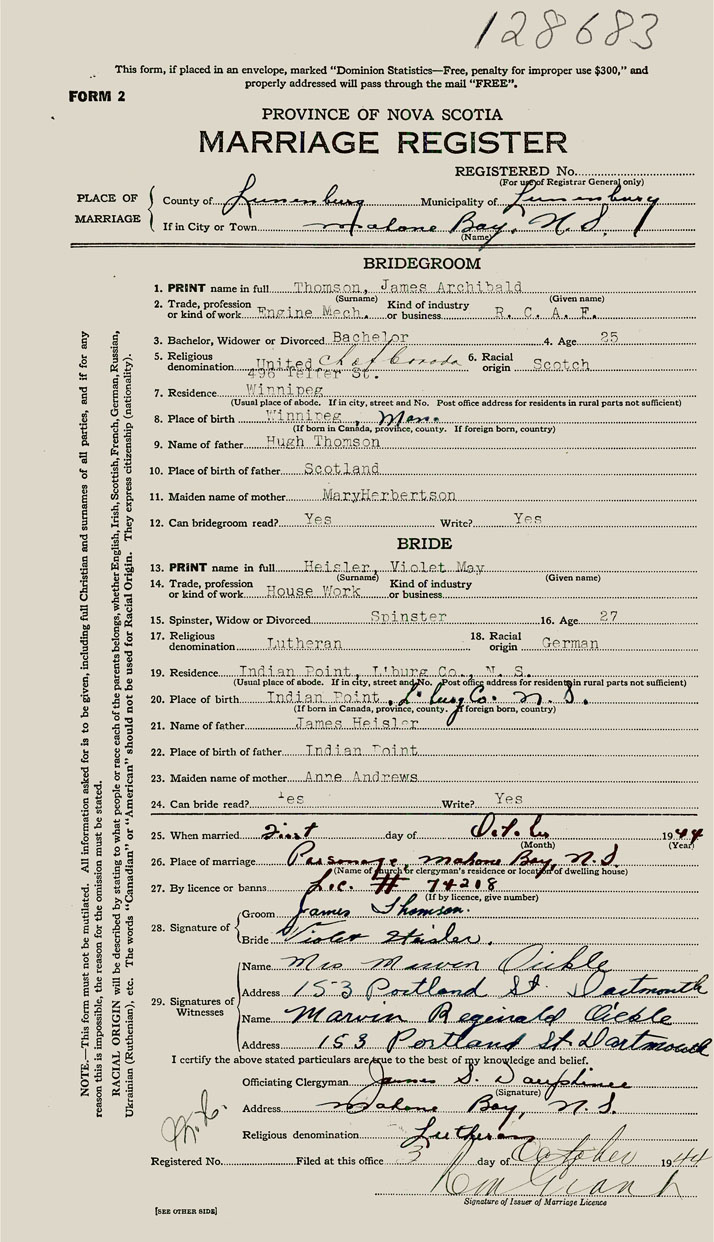 128683
This form, if placed in an envelope, marked "Dominion Statistics—Free, penalty for improper use $300," and
properly addressed will pass through the mail "FREE".
FORM 2
PROVINCE OF NOVA SCOTIA
MARRIAGE REGISTER
REGISTERED No.
(For use of Registrar General only)
PLACE OF MARRIAGE
County of Lunenburg Municipality of Lunenburg
If in City or Town Mahone Bay, N.S.
(Name)
BRIDEGROOM
1. PRINT name in full Thomson, James Archibald
(Surname) (Given name)
2. Trade, profession or kind of work Engine Mech. Kind of industry or business R. C. A. F.
3. Bachelor, Widower or Divorced Bachelor 4. Age 25
5. Religious denomination United Ch of Canada 6. Racial origin Scotch
496 Telfer St.
7. Residence Winnipeg
(Usual place of abode. If in city, street and No. Post office address for residents in rural parts not sufficient)
8. Place of birth Winnipeg, Man.
(If born in Canada, province, county. If foreign born, country)
9. Name of father Hugh Thomson
10. Place of birth of father Scotland
11. Maiden name of mother MaryHerbertson
12. Can bridegroom read? Yes Write? Yes
BRIDE
13. PRINT name in full Heisler, Violet May
(Surname) (Given name)
14. Trade, profession or kind of work House Work Kind of industry or business
15. Spinster, Widow or Divorced Spinster 16. Age 27
17. Religious denomination Lutheran 18. Racial origin German
19. Residence Indian Point, L'burg Co., N. S.
(Usual place of abode. If in city, street and No. Post office address for resident in rural parts not sufficient)
20. Place of birth Indian Point, L'burg Co. N.S.
(If born in Canada, province, county. If foreign born, country)
21. Name of father James Heisler
22. Place of birth of father Indian Point
23. Maiden name of mother Anne Andrews
24. Can bride read? Yes Write? Yes
25. When married First day of October 1944
(Month) (Year)
26. Place of marriage Parsonage, Mahone Bay, N.S.
(Name of church or clergyman's residence or location of dwelling house)
27. By licence or banns Lic. # 74218
(If by licence, give number)
28. Signature of
Groom James Thomson.
Bride Violet Heisler.
29. Signatures of Witnesses
Name Mrs Marven Oickle
Address 153 Portland St. Dartmouth
Name Marvin Reginald Oickle
Address 153 Portland St. Dartmouth
I certify the above stated particulars are true to the best of my knowledge and belief.
Officiating Clergyman James S. Dauphinee
(Signature)
Address Mahone Bay, N.S.
Religious denomination Lutheran
Registered No. Filed at this office 3 day of October 1944
Signature of Issuer of Marriage Licence
[SEE OTHER SIDE]
NOTE.—This form must not be mutilated. All information asked for is to be given, including full Christian and surnames of all parties, and if for any
reason this is impossible, the reason for the omission must be stated.
RACIAL ORIGIN will be described by stating to what people or race each of the parents belongs, whether English, Irish, Scottish, French, German, Russian,
Ukrainian (Ruthenian), etc. The words "Canadian" or "American" should not be used for Racial Origin. They express citizenship (nationality).